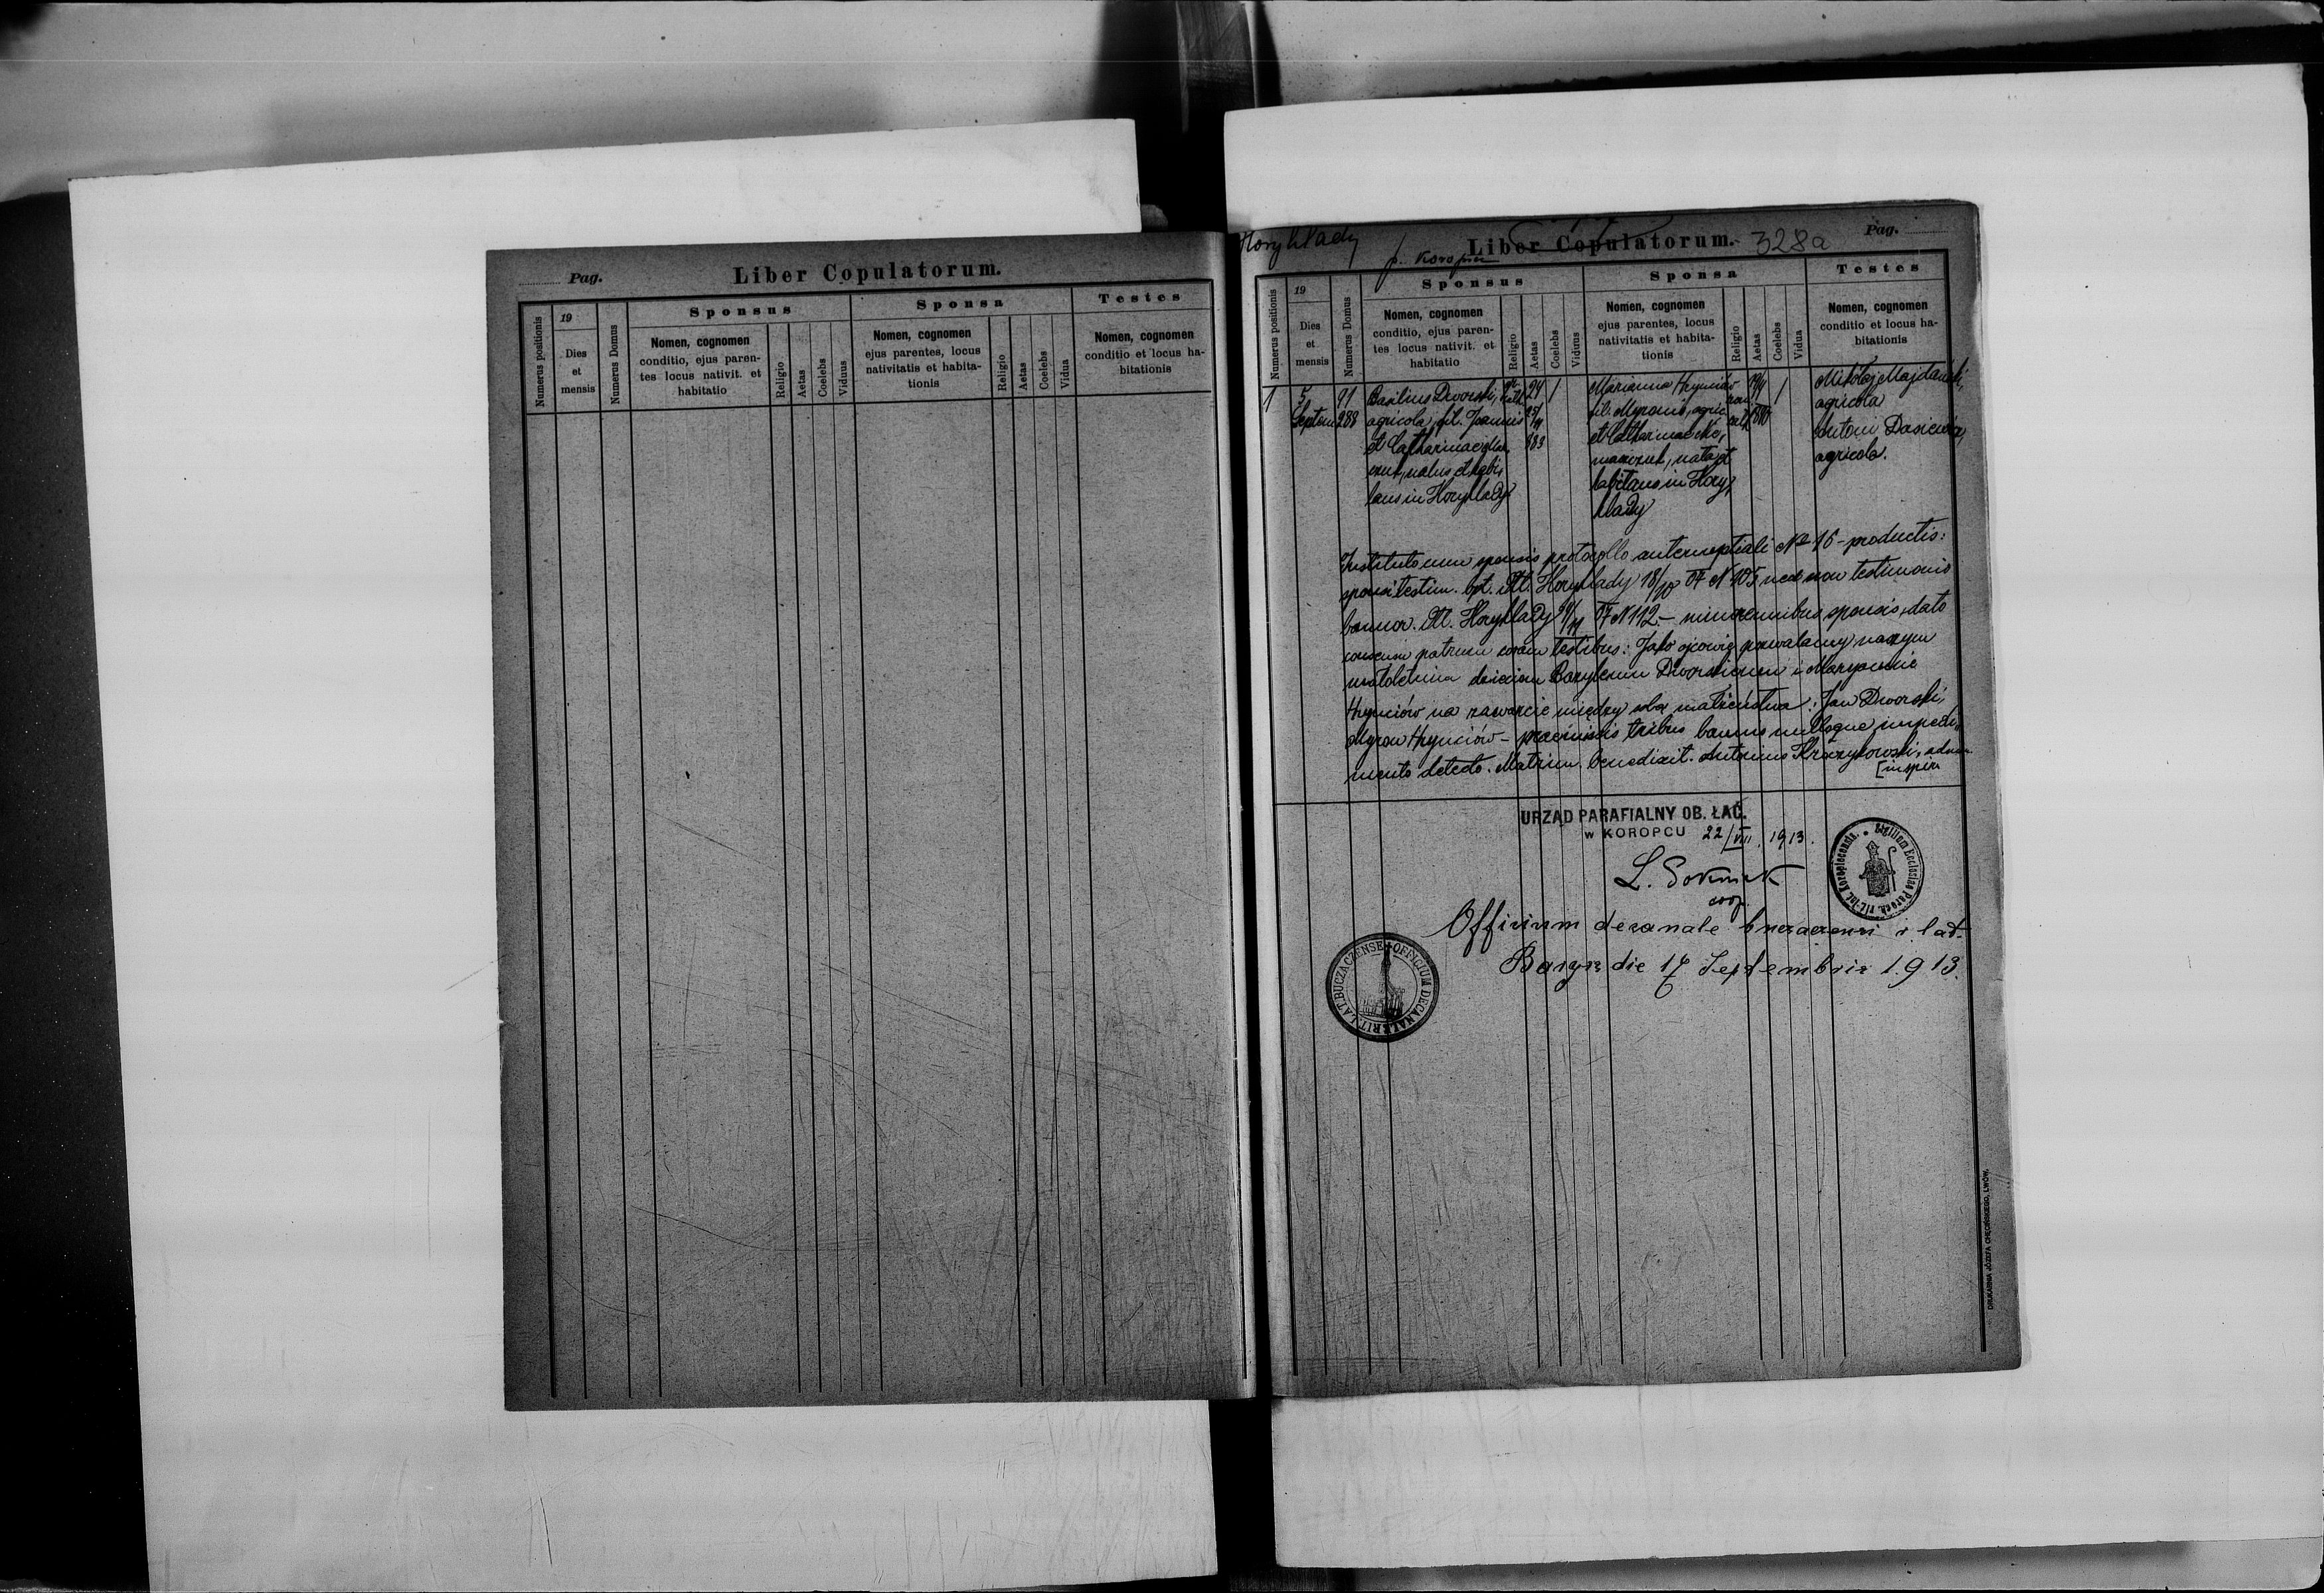 Pag.
Liber Copulatorum.
Numerus positionis
19
Dies
et
mensis
Numerus Domus
Sponsus
Nomen, cognomen
conditio, ejus paren-
tes locus nativit. et
habitatio
Religio
Aetas
Coelebs
Viduus
Sponsa
Nomen, cognomen
ejus parentes, locus
nativitatis et habita-
tionis
Religio
Aetas
Coelebs
Vidua
Testes
Nomen, cognomen
conditio et locus ha-
bitationis
Horyhlady
p. Koropiec
Liber Copulatorum.
328a
Pag.
Numerus positionis
19
Dies
et
mensis
Numerus Domus
Sponsus
Nomen, cognomen
conditio, ejus paren-
tes locus nativit. et
habitatio
Religio
Aetas
Coelebs
Viduus
Sponsa
Nomen, cognomen
ejus parentes, locus
nativitatis et habita-
tionis
Religio
Aetas
Coelebs
Vidua
Testes
Nomen, cognomen
conditio et locus ha-
bitationis
1
5
Septem
91
288
Basilius Dworski,
agricola, fil. Joannis
et Catharinae
natus et habi,
tans in Horyhlady
24
1
Marianna Hrynciów
fil. Myronis, agric.
et Catharinae
nata et
habitans in Hory,
hlady
1
Mikołaj Majdański,
agricola
Antoni
agricola.
Instituto cum sponsis protocollo antenuptiali № 16 - productis:
sponsi testim. bpt. Horyhlady 18/10 07 N 105 nec non testimonio
bannor. Horyhlady 07 N 112. - minorennibus sponsis, dato
consensu patrum coram testibus: Jako ojcowie pozwalamy naszym
małoletnim dzieciom Bazylemu Dworskiemu i Maryannie
Hrynciów na zawarcie między sobą małżeństwa: Jan Dworski,
Myron Hrynciów - praemissis tribus bannis nulloque impedi,
mento detecto. Matrim. benedixit. Antonius Krzyżowski,
URZĄD PARAFIALNY OB. ŁAĆ.
w KOROPCU 22/VIII. 1913.
L. Sokmak
coop.
Sigillum Ecclesiae Paroch. rit. lat. Koropiecensis.
Officium decanale buczaczensi r. lat.
die 17 Septembris 1913.
OFFICIUM DECANALE RIT. LAT. BUCZACZENSE
DRUKARNIA JÓZEFA CHĘCIŃSKIEGO, LWÓW.